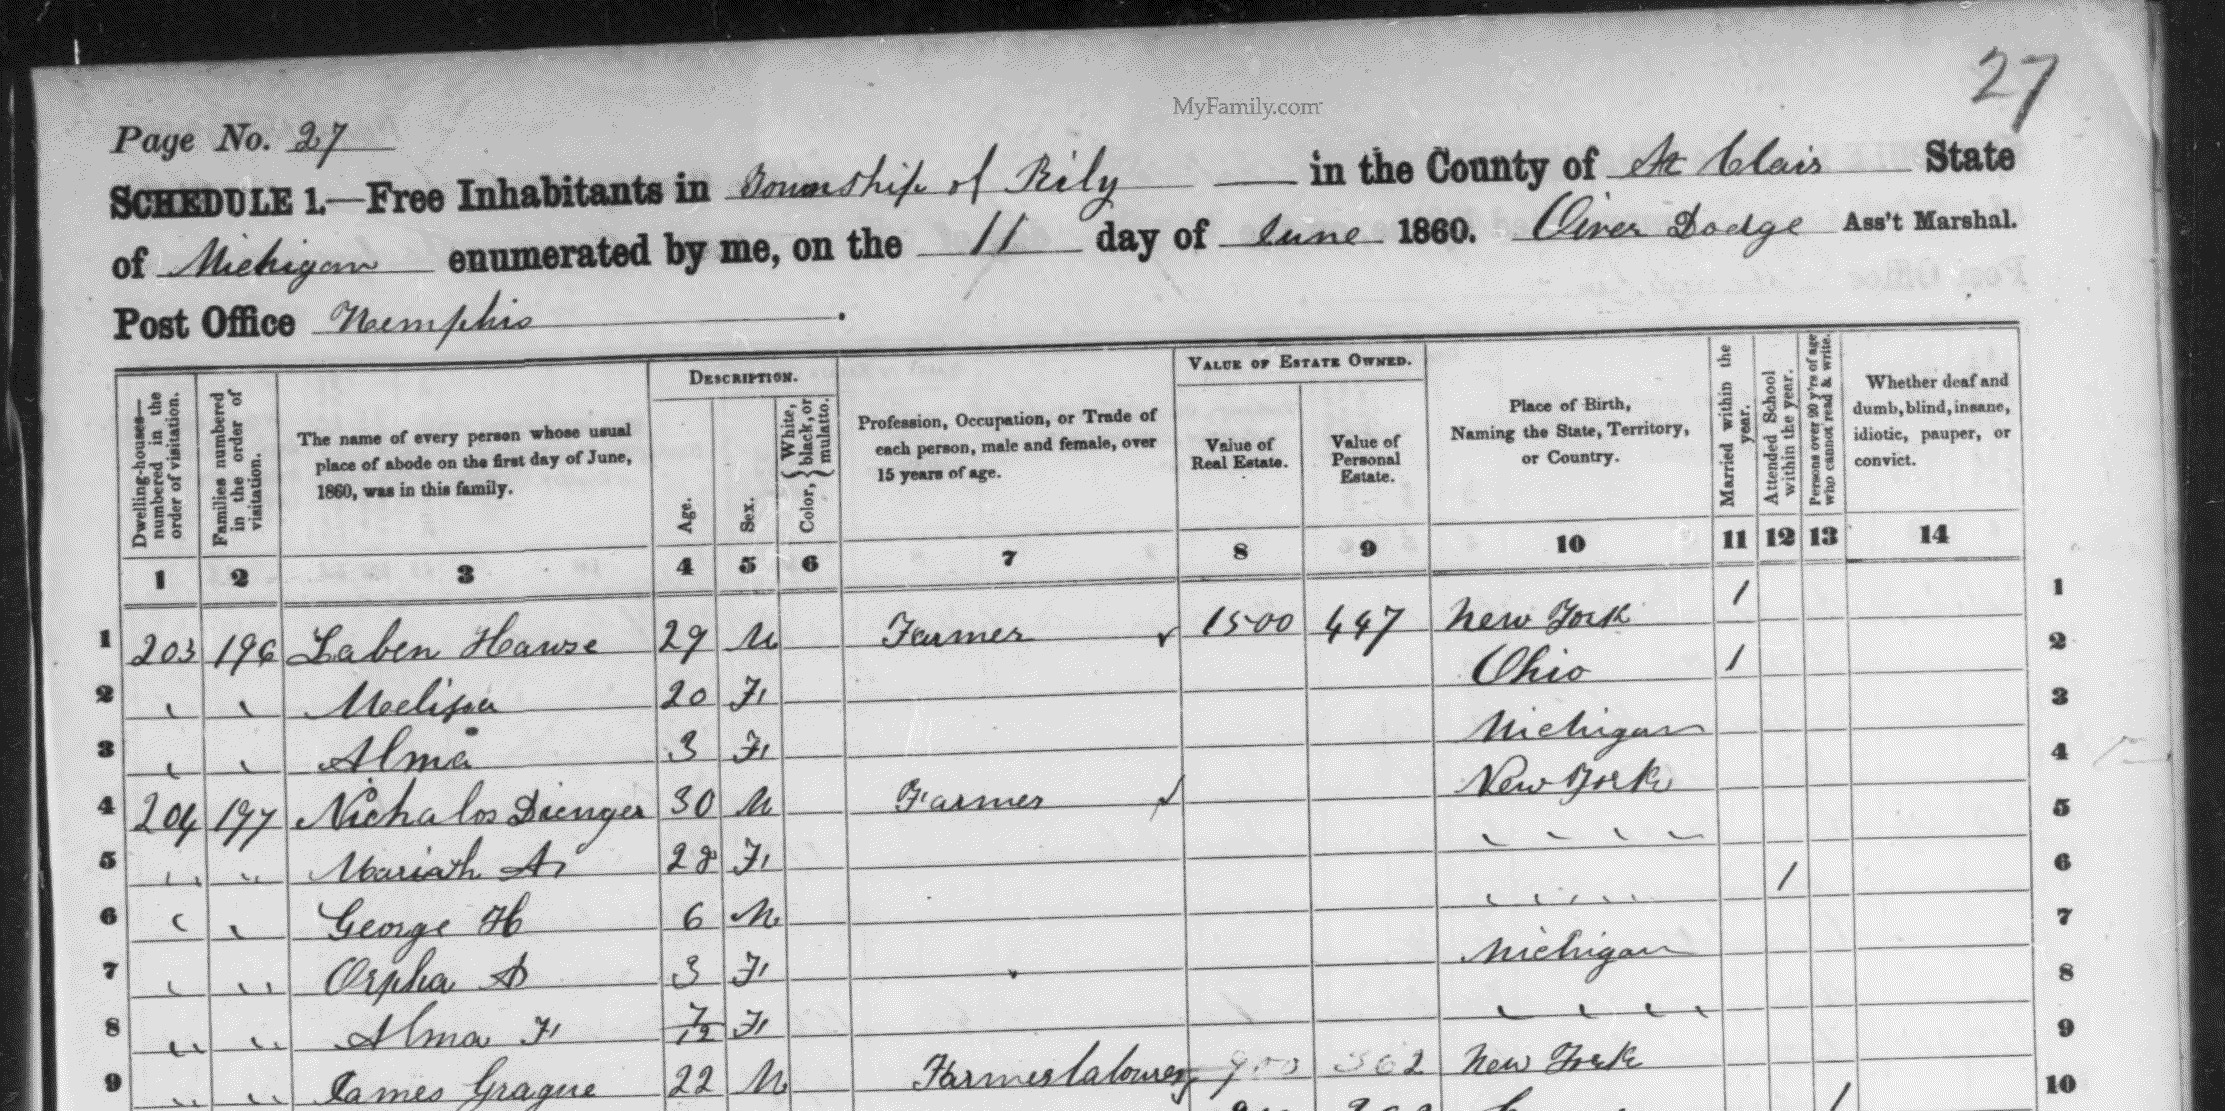 27
MyFamily.com
Page No. 27
SCHEDULE 1.—Free Inhabitants in Township of Rily in the County of St Clair State
of Michigan enumerated by me, on the 11 day of June 1860. Oliver Dodge Ass't Marshal.
Post Office Memphis.
Dwelling-houses—numbered in the order of visitation.
Families numbered in the order of visitation.
The name of every person whose usual place of abode on the first day of June, 1860, was in this family.
DESCRIPTION.
Age.
Sex.
Color, { White, black, or mulatto.
Profession, Occupation, or Trade of each person, male and female, over 15 years of age.
VALUE OF ESTATE OWNED.
Value of Real Estate.
Value of Personal Estate.
Place of Birth, Naming the State, Territory, or Country.
Married within the year.
Attended School within the year.
Persons over 20 y'rs of age who cannot read & write.
Whether deaf and dumb, blind, insane, idiotic, pauper, or convict.
1 2 3 4 5 6 7 8 9 10 11 12 13 14
1 203 196 Laben Hawse 29 M Farmer 1500 447 New York 1 1
2 " " Melissa 20 F Ohio 1 2
3 " " Alma 3 F Michigan 3
4 204 197 Nichalos Dienger 30 M Farmer New York 4
5 " " Mariah A 28 F " " " " 5
6 " " George H 6 M " " " " 1 6
7 " " Orpha D 3 F Michigan 7
8 " " Alma F 7/12 F " " " " 8
9 " " James Grague 22 M Farmer labourer 900 362 New York 9
1 10